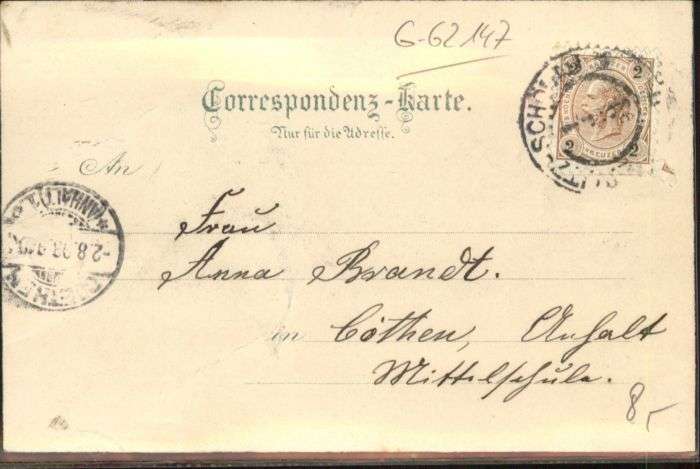 G-62147
Correspondenz-Karte.
Nur für die Adresse.
2
2 KREUZER 2
SCHÖNAU
An
Frau
Anna Brandt.
in Cöthen, Anhalt
Mittelschule.
(ANHALT)
-2.8.98.
8,-